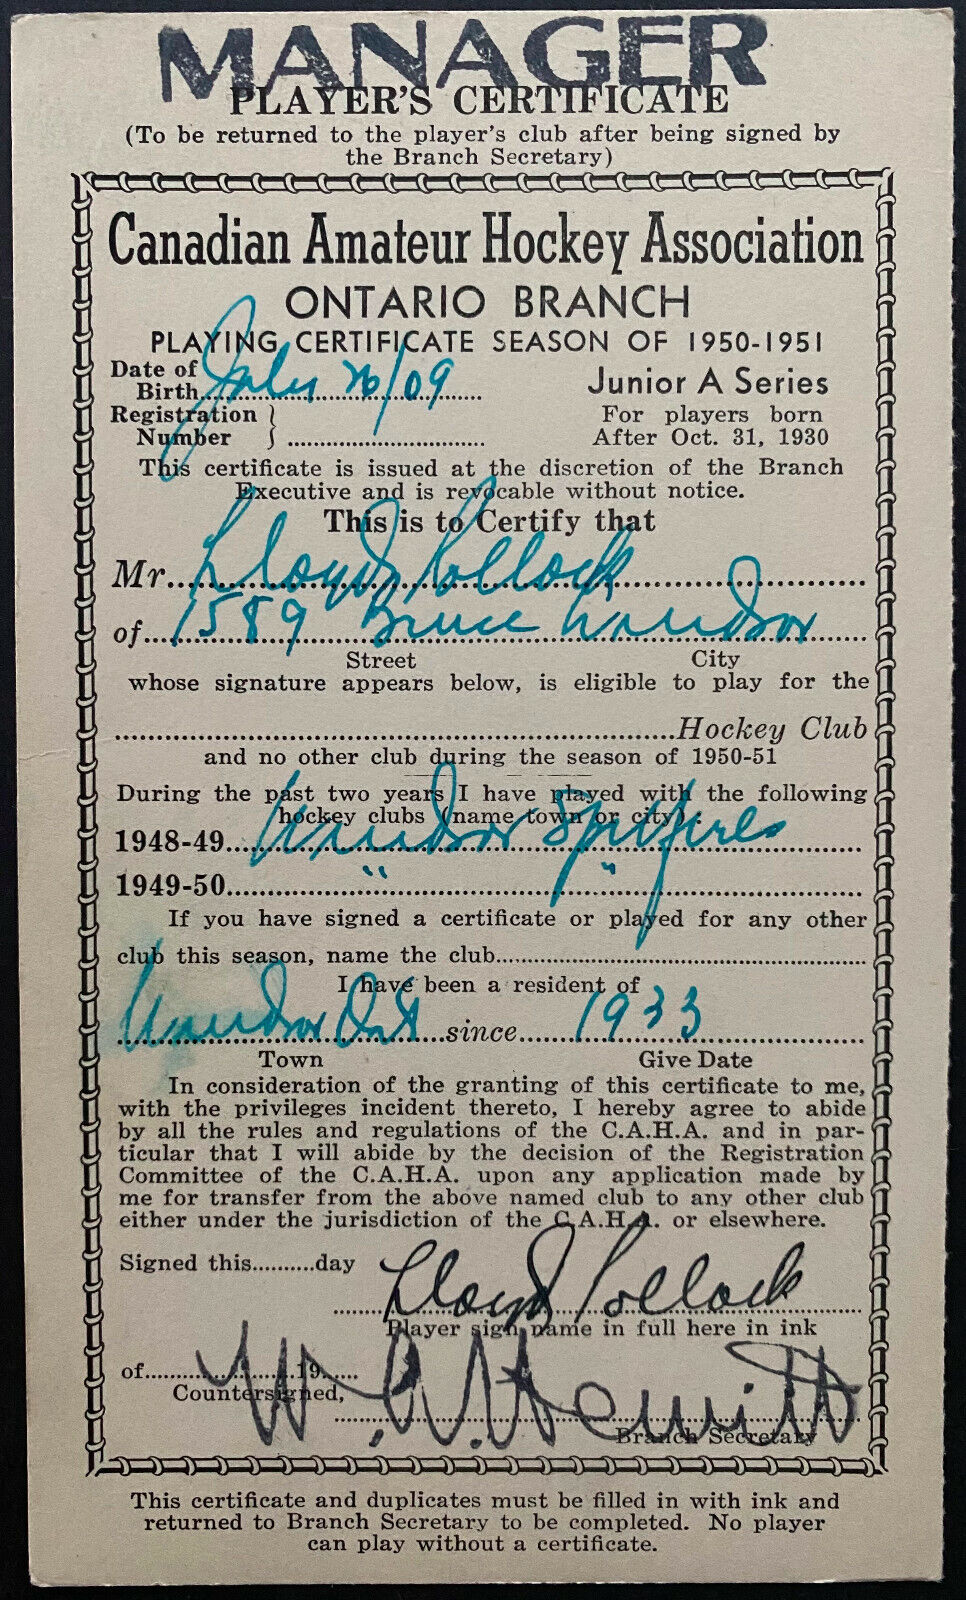 MANAGER
PLAYER'S CERTIFICATE
(To be returned to the player's club after being signed by
the Branch Secretary)
Canadian Amateur Hockey Association
ONTARIO BRANCH
PLAYING CERTIFICATE SEASON OF 1950-1951
Date of
Birth July 20/09
Junior A Series
Registration
Number
For players born
After Oct. 31, 1930
This certificate is issued at the discretion of the Branch
Executive and is revocable without notice.
This is to Certify that
Mr. Lloyd Pollock
of 1589 Bruce Windsor
Street City
whose signature appears below, is eligible to play for the
Hockey Club
and no other club during the season of 1950-51
During the past two years I have played with the following
hockey clubs (name town or city):
1948-49 Windsor Spitfires
1949-50 " "
If you have signed a certificate or played for any other
club this season, name the club
I have been a resident of
Windsor Ont since 1933
Town Give Date
In consideration of the granting of this certificate to me,
with the privileges incident thereto, I hereby agree to abide
by all the rules and regulations of the C.A.H.A. and in par-
ticular that I will abide by the decision of the Registration
Committee of the C.A.H.A. upon any application made by
me for transfer from the above named club to any other club
either under the jurisdiction of the C.A.H.A. or elsewhere.
Signed this..........day Lloyd Pollock
Player sign name in full here in ink
of....................19......
Countersigned, W. A. Hewitt
Branch Secretary
This certificate and duplicates must be filled in with ink and
returned to Branch Secretary to be completed. No player
can play without a certificate.